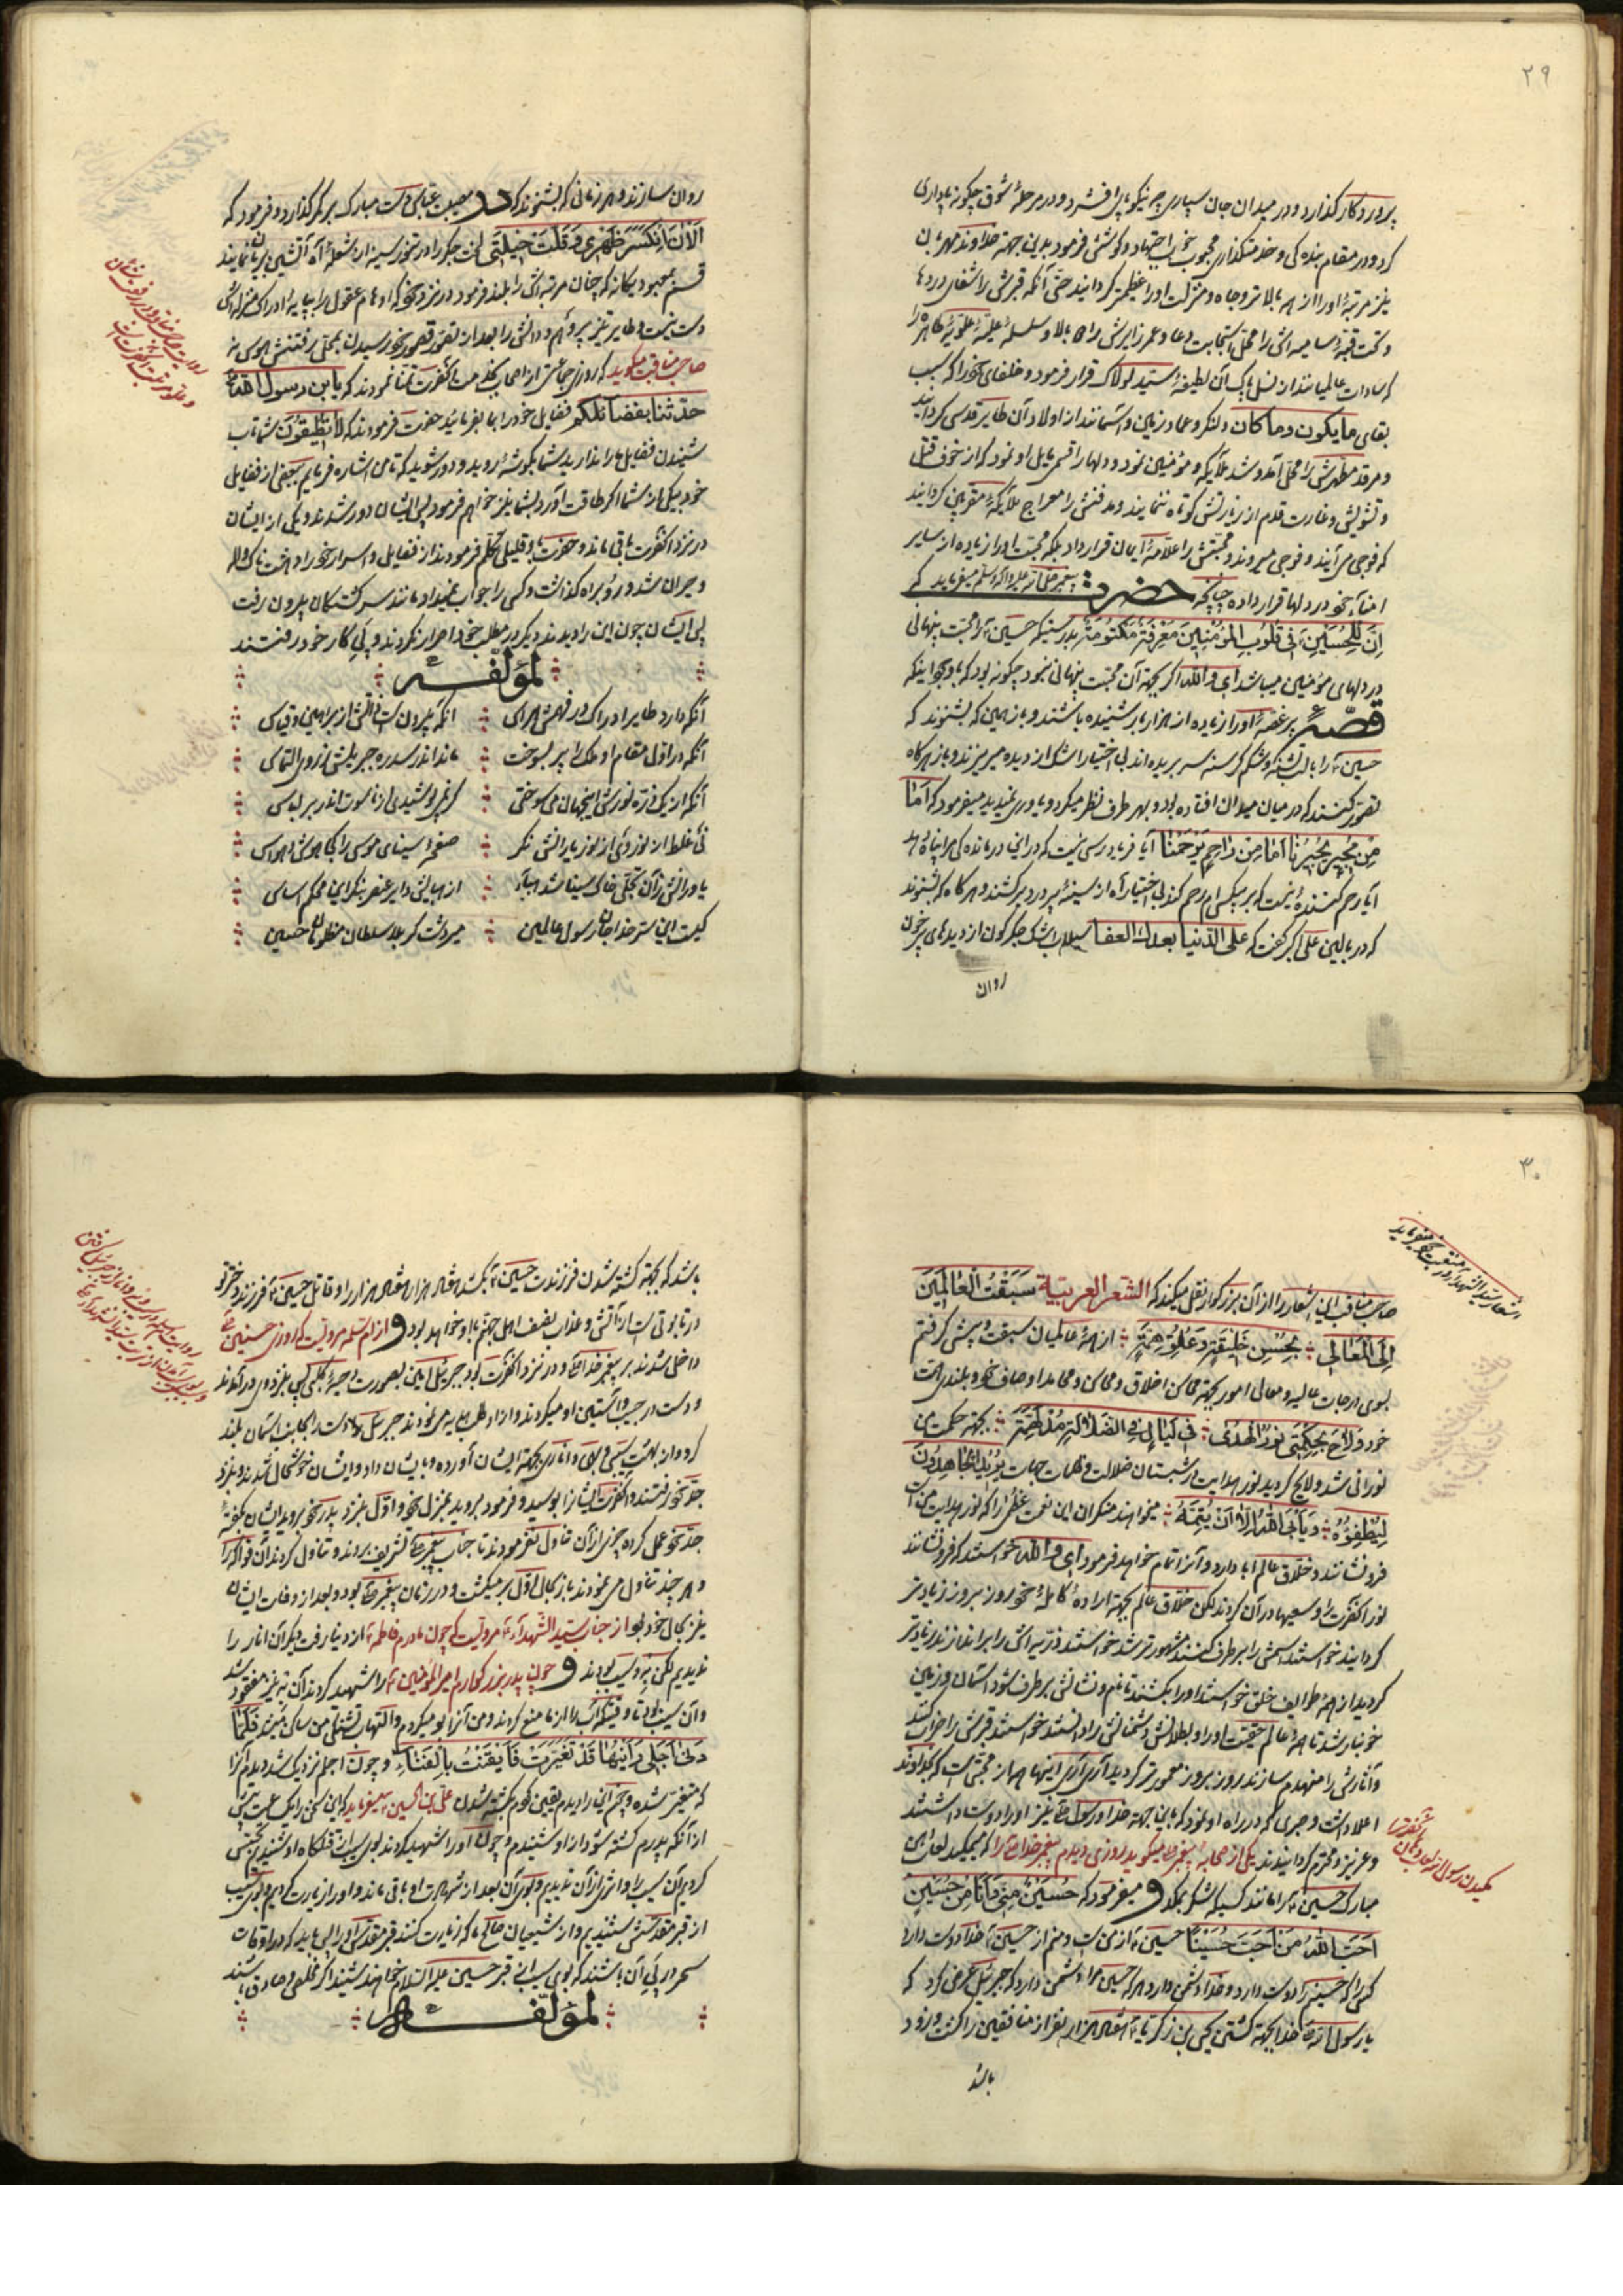 ٢٩
پروردگار گذارد و در میدان جان سپاری چه نیکو پای افشرد و در مرحلهٔ شوق چگونه پاداری
کرد و در مقام بنده کی و خدمتگذاری محبوب خود اجتهاد و کوشش فرمود بدین جهة خداوند مهربان
نیز مرتبهٔ او را از همه بالاتر و جاه و منزلت او را عظیمتر گردانید حتی آنکه قبرش را شفای دردها
و تحت قبهٔ سامیه اش را محل استجابت دعا و عمر زایرش را
که سادات عالیا شد از نسل پاک آن لطیفهٔ سید لولاک قرار فرمود و خلفای خود را که سبب
بقای مایکون و ماکان و لنگر و عماد زمین و آسمانند از اولاد آن طایر قدسی گردانید
و مرقد مطهرش را محل آمد و شد ملایکه و مؤمنین نمود و دلها را قسمی مایل او نمود که از خوف قتل
و تشویش و غارت قدم از زیارتش کوتاه ننمایند و مدفنش را معراج ملایکهٔ مقربین گردانید
که فوجی می آیند و فوجی میروند و محبتش را علامهٔ ایمان قرار داد بلکه محبت او را زیاده از سایر
امناء خود در دلها قرار داده چنانچه حضرت پیغمبر صلی الله علیه و آله وسلم میفرماید که
اِنَّ لِلحُسَینِ فی قُلُوبِ المُؤمِنینَ مَعرِفَةً مَکتُومَةً بدرستیکه حسین را محبت پنهانی
در دلهای مؤمنین میباشد ای والله اگر بجهة آن محبت پنهانی نبود چگونه بود که با وجود اینکه
قصهٔ پر غصهٔ او را زیاده از هزار بار شنیده باشند و باز همین که بشنوند که
حسین را با لب تشنه و شکم گرسنه سر بریده اند بی اختیار اشک از دیده میریزند و باز هر گاه
تصور کنند که در میان میدان افتاده بود و بهر طرف نظر میکرد و یاوری نمیدید میفرمود که اَما
مِن مُجیرٍ یُجیرُنا اَما مِن راحِمٍ یَرحَمُنا آیا فریاد رسی نیست که در این درمانده کی مرا پناه دهد
آیا رحم کنندهٔ نیست که بر بیکسی ام رحم کند بی اختیار آه از سینهٔ پر درد برکشند و هر گاه که بشنوند
که در بالین علی اکبر گفت که علی الدنیا بعدک العفا سیلاب اشک جگر گون از دیده های پر خون
روان
روان سازند و هر زمانی که بشنوند که در مصیبت عباس دست مبارک بر کمر گذارد و فرمود که
اَلآنَ اِنکَسَرَ ظَهری وَ قَلَّت حیلَتی لخت جگر را در تنور سینه از شعلهٔ آه آتشین بریان نمایند
قسم بمعبود یگانه که چنان مرتبه اش را بلند فرمود در نزد خود که اوهام عقول را بپایهٔ ادراک منزله اش
دست نیست و طایر تیز پر وهم و دانش را بعد از تصور قصور بخور رسیدن بمحل رفتنش هوس نه
صاحب مناقب میگوید که روزی جماعتی از اصحاب بخدمت آنحضرت تمنا نمودند که یابن رسول الله
حدثنا بفضائلکم فضایل خود را بما بفرمائید حضرت فرمودند که لا تطیقون شما تاب
شنیدن فضایل ما را ندارید شما بگوشهٔ روید و دور شوید که تا من اشاره فرمایم ببعضی از فضایل
خود بیکی از شما اگر طاقت آورد بشما نیز خواهم فرمود پس ایشان دور شدند و یکی از ایشان
در نزد آنحضرت باقی ماند و حضرت با او قلیلی تکلم فرمودند از فضایل و اسرار خود
و حیران شد و رو براه گذاشت و کسی را جواب نمیداد مانند سرگشتگان بیرون رفت
پس ایشان چون این را دیدند دیگر در مطلب خود اصرار نکردند و پی کار خود رفتند
لمؤلفه
آنکه دارد طایر ادراک در فهمش هراس
آنکه بیرون است ذاتش از براهین و قیاس
آنکه در اول مقام او ملک را پر بسوخت
ماند اندر سدره جبریلش ز روی التماس
آنکه از یک ذره نورش اینجهان می سوختی
گر نمی پوشیدی از ناسوت اندر بر لباس
نی غلط از نور وی از نور یارانش نگر
صفحهٔ سینای موسی را کجا هوش و حواس
کیست این سر خدا جان رسول عالمین
میر دشت کربلا سلطان مظلومان حسین
٣٠
صاحب مناقب این اشعار را از آن بزرگوار نقل میکند که الشعر العربیة سَبَقتُ العالَمینَ
اِلَی المَعالی بِحُسنِ خَلیقَةٍ وَ عُلُوِّ هِمَّةٍ از همهٔ عالمیان سبقت و پیشی گرفتم
بسوی درجات عالیه و معالی امور بجهة محاسن اخلاق و محاسن و محامد اوصاف خود و بلندی همت
خود وَ لاحَ بِحِکمَتی نورُ الهُدی فی لَیالٍ فِی الضَّلالَةِ مُدلَهِمَّةٍ بجهة حکمت من
نورانی شد و لایح گردید نور هدایت در شبستان ضلالت و ظلمات جهالت یُریدُ الجاحِدونَ
لِیُطفِؤُهُ وَ یَأبَی اللهُ اِلّا اَن یُتِمَّهُ میخواهند منکران این نعمت عظمی را که نور هدایت من است
فرو نشانند و خلاق عالم ابا دارد و آنرا تمام خواهد فرمود ای والله خواستند که فرو نشانند
نور آنحضرت را و سعیها در آن کردند لکن خلاق عالم بجهة ارادهٔ کاملهٔ خود روز بروز زیادتر
گردانید خواستند اسمش را بر طرف کنند مشهورتر شد خواستند ذریه اش را براندازند زیادتر
گردید از همهٔ طوایف خلق خواستند او را بکشند تا نام و نشانش بر طرف شود آسمان و زمین
خونبار شد تا همهٔ عالم حقیقت او را و بطلان دشمنانش را دانستند خواستند قبرش را خراب کنند
و آثارش را منهدم سازند روز بروز معمورتر گردید آری آری اینها همه از محبتی است که خداوند
اعلا داشت و صبری که در راه او نمود که باین جهة خدا و رسول نیز او را دوست داشتند
و عزیز و محترم گردانیدند یکی از صحابهٔ پیغمبر میگوید روزی دیدم پیغمبر خدا را که میمکید لعاب دهن
مبارک حسین را مانند کسیکه شکر بمکد و میفرمود که حُسَینٌ مِنّی وَ اَنَا مِن حُسَینٍ
اَحَبَّ اللهُ مَن اَحَبَّ حُسَیناً حسین از من است و منم از حسین خدا دوست دارد
کسی را که حسین را دوست دارد و خدا دشمن دارد هر که حسین را دشمن دارد که جبرئیل عرض کرد که
یا رسول الله خدا بجهة کشتن یحیی بن زکریا هفتاد هزار نفر از منافقین را کشت و زود
باشد
باشد که بجهة کشته شدن فرزندت حسین بکشد هفتاد هزار هفتاد هزار را و قاتل حسین
در تابوتی است از آتش و عذاب نصف اهل جهنم با او خواهد بود و از ام سلمه مرویست که روزی حسنین
داخل شدند بر پیغمبر خدا و در نزد آنحضرت بود جبرئیل امین بصورت دحیهٔ کلبی پس بنزد وی در آمدند
و دست در جیب و آستین او میکردند و از او طلب هدیه می نمودند جبرئیل دست را بجانب آسمان بلند
کرد و از بهشت سیبی و بهی و اناری بجهة ایشان آورده و بایشان داد و ایشان خوشحال شدند و بنزد
جد خود رفتند و آنحضرت ایشانرا بوسید و فرمود بروید بمنزل خود و اول بنزد پدر خود بروید ایشان بگفتهٔ
جد خود عمل کرده چیزی از آن تناول نفرمودند تا جناب پیغمبر تشریف بردند و تناول کردند آن فواکه را
و هر چند تناول می نمودند باز بحال اول بر میگشت و در زمان پیغمبر بود و بعد از وفات ایشان
نیز بحال خود بود از جناب سید الشهداء مرویست که چون مادرم فاطمه از دنیا رفت دیگر آن انار را
ندیدیم لکن به و سیب بودند و چون پدر بزرگوارم امیر المؤمنین را شهید کردند آن به نیز مفقود شد
و آن سیب بود تا وقتیکه آب را از ما منع کردند و من آنرا بو میکردم و التهاب تشنگی من ساکن میشد فَلَمّا
دَنی اَجَلی رَاَیتُها قَد تَغَیَّرَت فَاَیقَنتُ بِالفَناءِ و چون اجلم نزدیک شد دیدم آنرا
که متغیر شده و چون این را دیدم یقین کردم بکشته شدن علی بن الحسین میفرماید که این سخن را یک ساعت پیش
از آنکه پدرم کشته شود از او شنیدم و چون او را شهید کردند بوی سیب از قتلگاه او شنیدم
کردیم آن سیب را و اثری از آن ندیدیم و بوی آن بعد از شهادت او باقی ماند و او را زیارت کردیم و بوی سیب
از قبر مقدسش شنیدیم و از شیعیان صالح ما که زیارت کنند قبر مقدس او را پس باید که در اوقات
سحر در پی آن باشند که بوی سیب از قبر حسین علیه السلام خواهند شنید اگر مخلص و صادق باشند
لمؤلفه